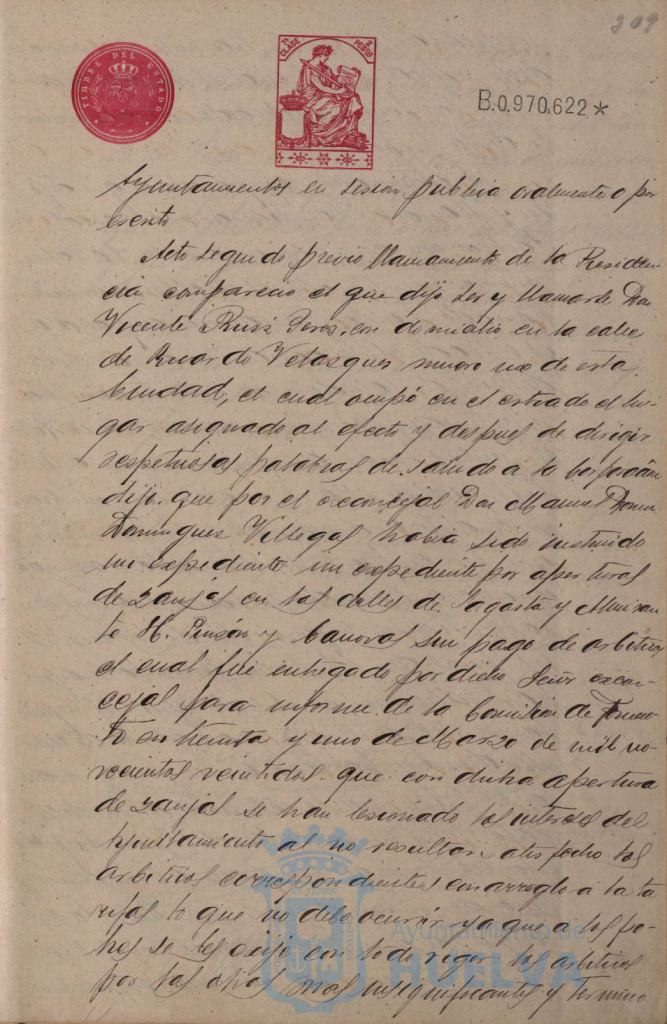 209
TIMBRE DEL ESTADO
7ª CLASE 2 PESETAS
B.0.970.622*
Ayuntamientos en sesion publica oralmente o por
escrito
Acto seguido previo llamamiento de la Residen
cia comparecio el que dijo ser y llamarse Don
Vicente Ruiz, con domicilio en la calle
de Ricardo Velasquez numero uno de esta
Ciudad, el cual ocupó en el estrado el lu
gar asignado al efecto y despues de dirigir
respetuosas palabras de saludo á la Corporacion
dijo: que por el exconcejal Don Manuel
Dominguez Villegas habia sido instruido
un expediente un expediente por aperturas
de zanjas en las calles de Sagasta y Almiran
te H. Pinzón y Canovas sin pago de arbitrios
el cual fue entregado por dicho Señor excon
cejal para informe de la Comision de Fomen
to en treinta y uno de Marzo de mil no
vecientos veintidos. que con dicha apertura
de zanjas se han lesionado los intereses del
Ayuntamiento al no resultar satisfecho los
arbitrios correspondientes con arreglo á la ta
rifas lo que no debe ocurrir ya que a los po
bres se les exije con todo rigor los arbitrios
por las obras mas insignificantes y termino
Ayuntamiento de
HUELVA